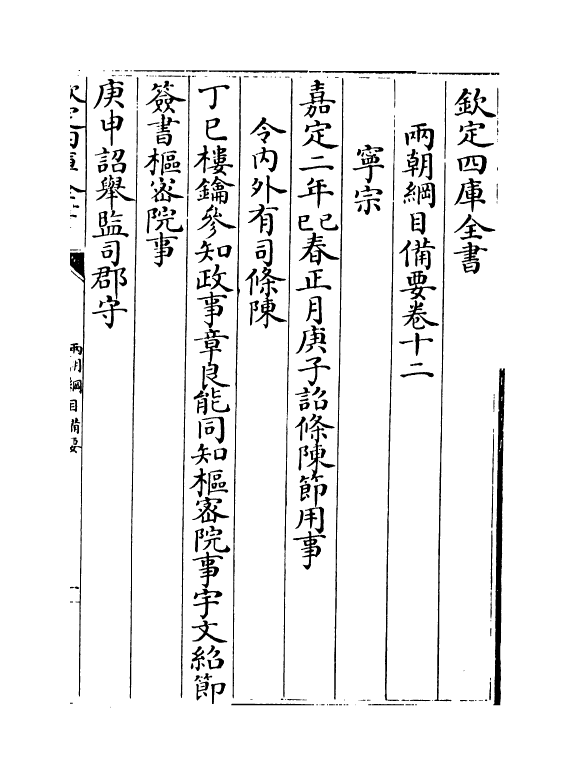 欽定四庫全書
兩朝綱目備要卷十二
寧宗
嘉定二年己巳春正月庚子詔條陳節用事
令內外有司條陳
丁巳樓鑰參知政事章良能同知樞密院事宇文紹節
簽書樞密院事
庚申詔舉監司郡守
兩朝綱目備要